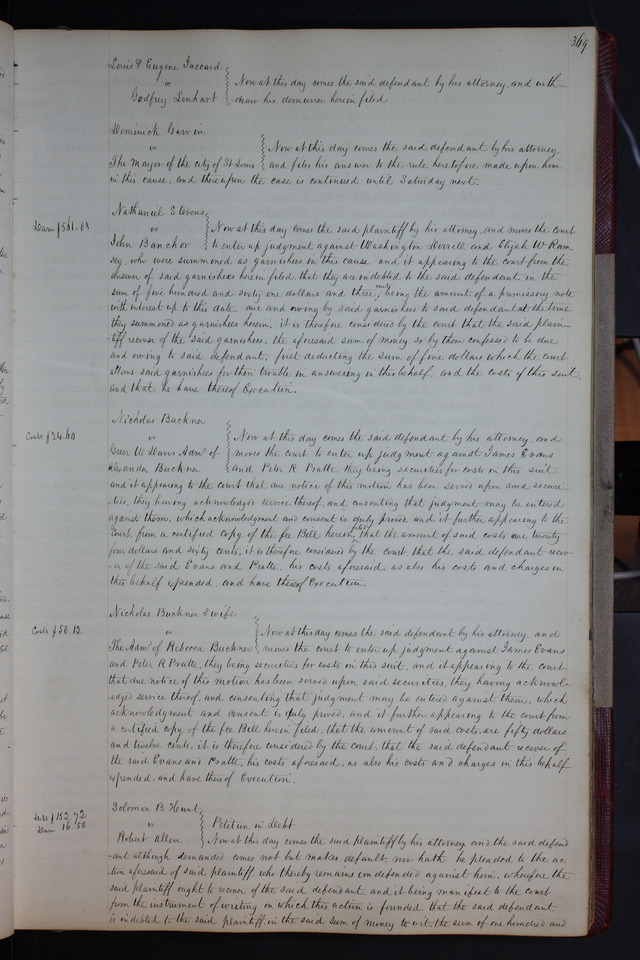 369
Louis & Eugene Jaccard
vs
Godfrey Lenhart
Now at this day comes the said defendant by his attorney, and with-
draw his demurrer herein filed
Dominick Garvin
vs
The Mayor of the city of St Louis
Now at this day comes the said defendant by his attorney,
and files his answer to the rule heretofore made upon him
in this cause, and thereupon the case is continued until Saturday next.
Nathaniel Stevens
Dam $561.03
vs
John Banchor
Now at this day comes the said plaintiff by his attorney and moves the court
to enter up judgment against Washington Dorrell and Elijah W Ram
sey, who were summoned as garnishees in this cause, and it appearing to the court from the
answer of said garnishees herein filed that they are indebted to the said defendant in the
sum of five hundred and sixty one dollars and three cents, being the amount of a promissory note
with interest up to this date, due and owing by said garnishees to said defendant at the time
they summoned as garnishees herein, it is therefore considered by the court that the said plain-
tiff recover of the said garnishees, the aforesaid sum of money so by them confessed to be due
and owing to said defendant, first deducting the sum of five dollars which the court
allows said garnishees for their trouble in answering in this behalf, and the costs of this suit,
and that he have thereof Execution.
Nicholas Buckner
Costs $24.60
vs
Greer W Davis Admr of
Alexander Buckner
Now at this day comes the said defendant by his attorney, and
moves the court to enter up judgment against James Evans
and Peter R Pratte, they being securities for costs in this suit
and it appearing to the court that due notice of this motion has been served upon said securi-
ties, they having acknowledged service thereof, and consenting that judgment may be entered
against them, which acknowledgment and consent is duly proved and it further appearing to the
Court from a certified copy of the fee Bill herein filed, that the amount of said costs are twenty
four dollars and sixty cents, it is therefore considered by the court, that the said defendant recov-
er of the said Evans and Pratte, his costs aforesaid, as also his costs and charges in
this behalf expended, and have thereof Execution.
Nicholas Buckner & wife
Costs $50.12
vs
The Admr of Rebecca Buckner
Now at this day comes the said defendant by his attorney, and
moves the court to enter up judgment against James Evans
and Peter R Pratte, they being securities for costs in this suit, and it appearing to the court
that due notice of this motion has been served upon said securities, they having acknowl-
edged service thereof, and consenting that judgment may be entered against them, which
acknowledgment and consent is duly proved, and it further appearing to the court from
a certified copy of the fee Bill herein filed, that the amount of said costs, are fifty dollars
and twelve cents, it is therefore considered by the court, that the said defendant recover of
the said Evans and Pratte, his costs aforesaid, as also his costs and charges in this behalf
expended, and have thereof Execution.
Solomon B Hunt
Debt $152.72
Dam 16.50
vs
Robert Allen
Petition in Debt
Now at this day comes the said plaintiff by his attorney and the said defend
ant although demanded comes not but makes default, nor hath he pleaded to the ac
tion aforesaid of said plaintiff, who thereby remains undefended against him, wherefore the
said plaintiff ought to recover of the said defendant, and it being manifest to the court
from the instrument of writing on which this action is founded, that the said defendant
is indebted to the said plaintiff in the said sum of money to wit, the sum of one hundred and